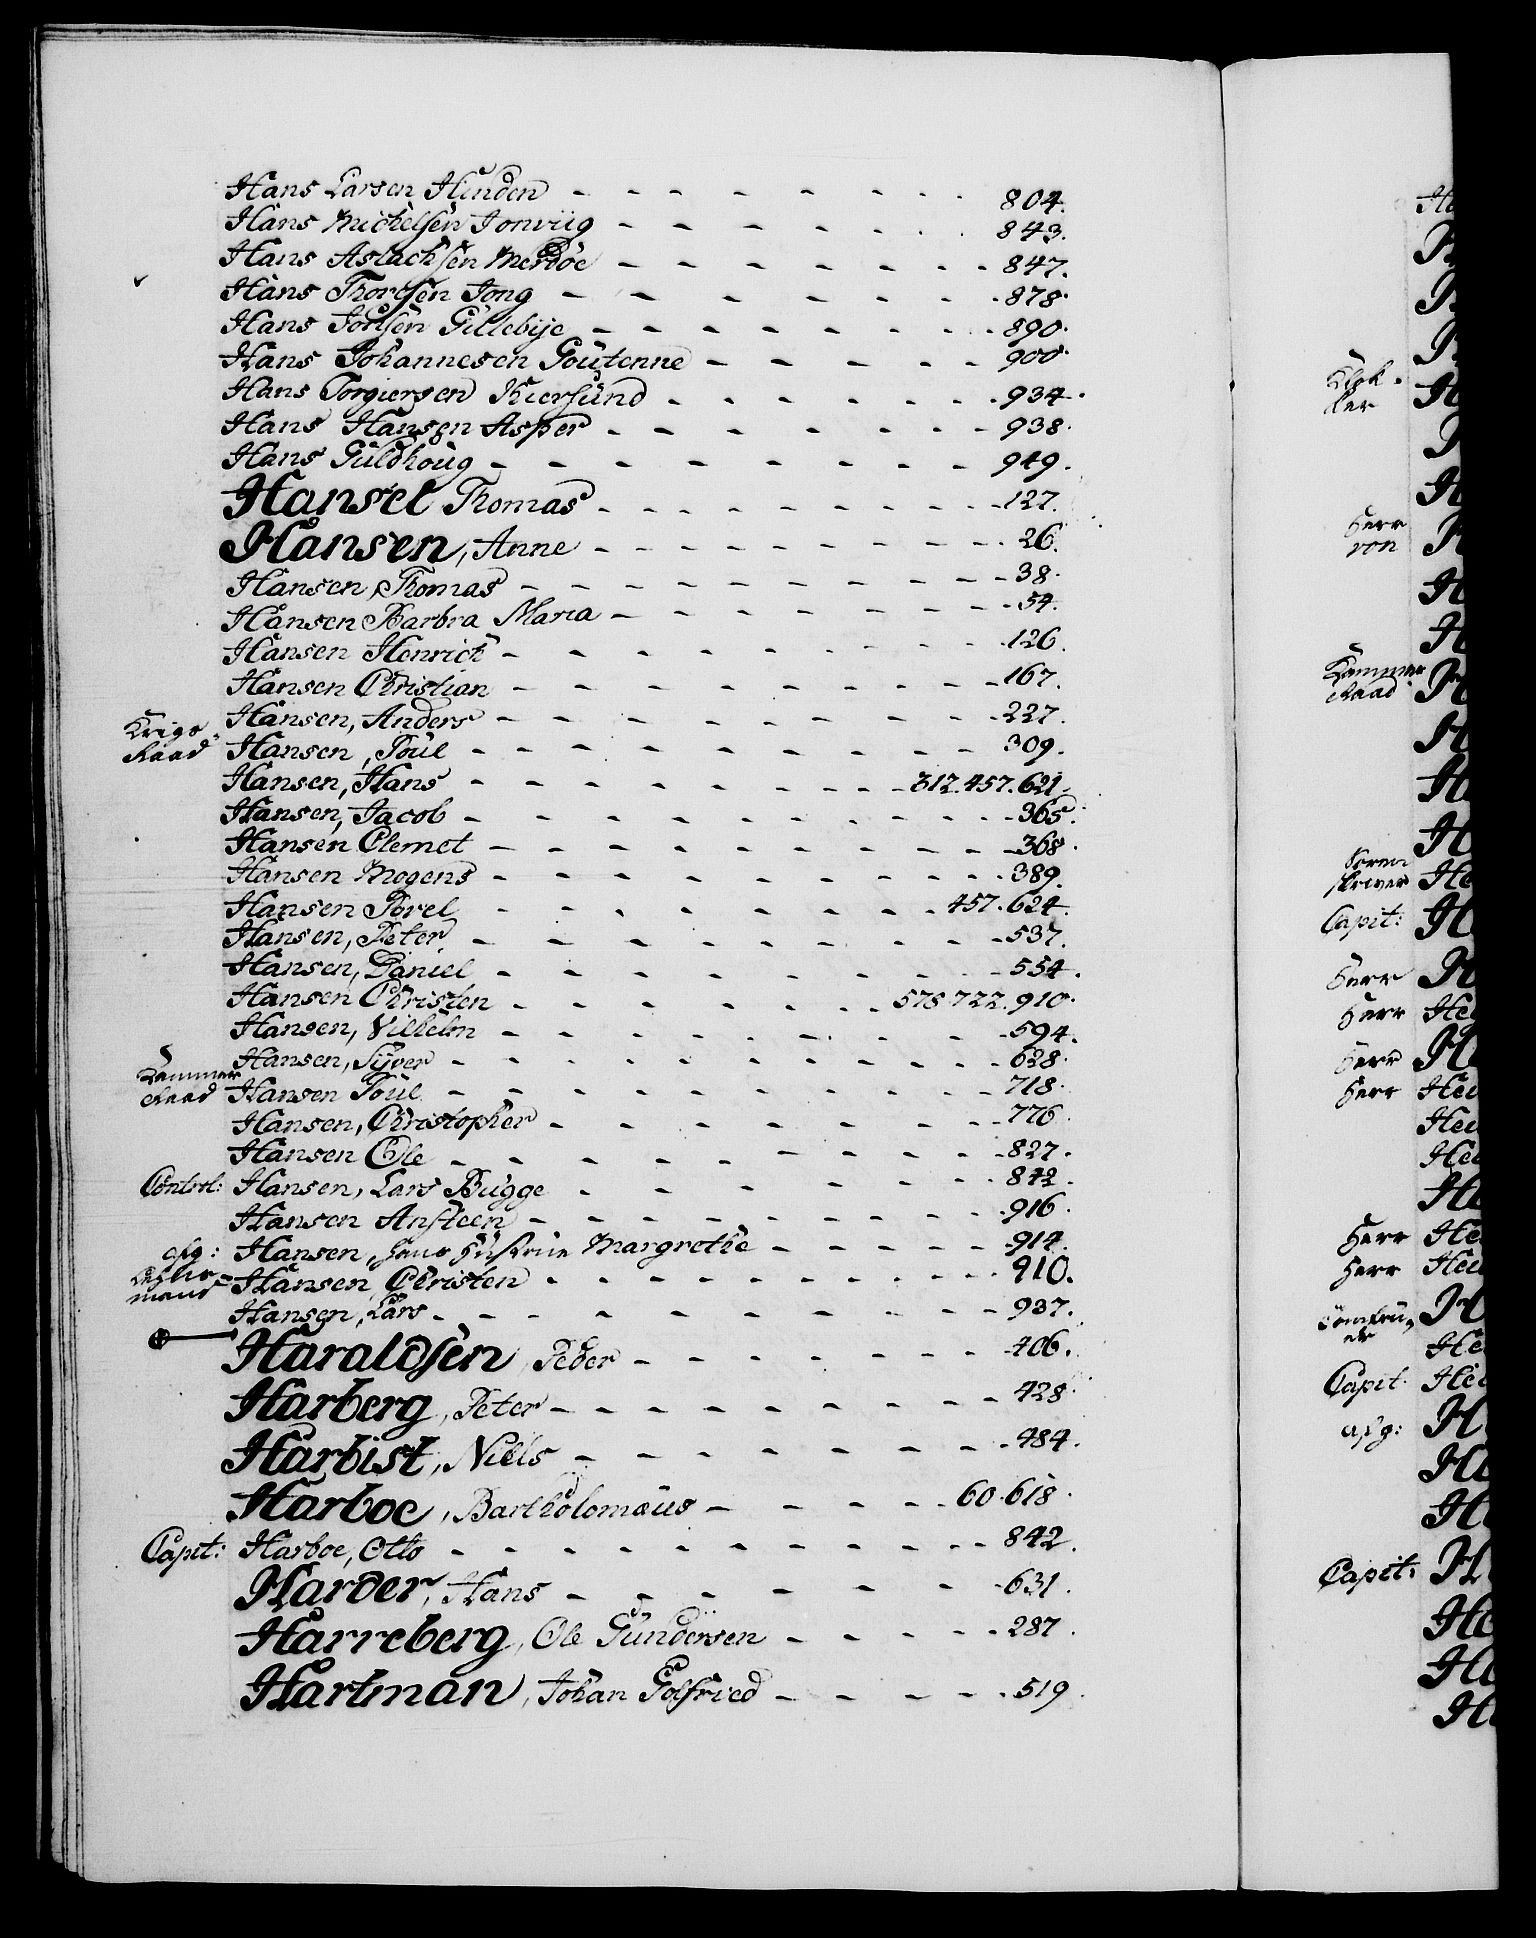 Hans Larsen Hunden - - - - - - - - - 804.
Hans Michelsen Jonviig - - - - - - - 843.
Hans Aslachsen Merdöe - - - - - - - - 847.
Hans Thorsen Jong - - - - - - - - 878.
Hans Jonsen Gillebÿe - - - - - - - - 890.
Hans Johannesen Goutenne - - - - - - 900.
Hans Torgiersen Kiersund - - - - - - - 934.
Hans Hansen Asper - - - - - - - - 938.
Hans Guldhoug - - - - - - - - - 949.
Hansel Thomas - - - - - - - - - - 127.
Hansen, Anne - - - - - - - - - - 26.
Hansen, Thomas - - - - - - - - - - - 38.
Hansen Barbra Maria - - - - - - - - - 54.
Hansen Henrich - - - - - - - - - - 126.
Hansen Christian - - - - - - - - - - 167.
Hansen, Anders - - - - - - - - - - 227.
Krigs-Raad Hansen, Poul - - - - - - - - - - 309.
Hansen, Hans - - - - - - - - 312. 457. 621.
Hansen, Jacob - - - - - - - - - - - 365.
Hansen Clemet - - - - - - - - - - - 368.
Hansen Mogens - - - - - - - - - - - 389.
Hansen Povel - - - - - - - - 457. 624.
Hansen, Peter - - - - - - - - - - 537.
Hansen, Daniel - - - - - - - - - 554.
Hansen Christen - - - - - - - 578. 722. 910.
Hansen, Vilhelm - - - - - - - - - 594.
Hansen, Syver - - - - - - - - - - 628.
Kammer Raad Hansen Poul - - - - - - - - - - - 718.
Hansen, Christopher - - - - - - - - - 776.
Hansen Ole - - - - - - - - - - 827.
Control: Hansen, Lars Bugge - - - - - - - 842.
Hansen Ansteen - - - - - - - - - 916.
afg: Hansen, hans Hustrue Margrethe - - - - - - 914.
mand Hansen, Christen - - - - - - - - - 910.
Hansen, Lars - - - - - - - - - - 937.
Haraldsen, Peder - - - - - - - - 406.
Harberg, Peter - - - - - - - - - - 428.
Harbist, Niels - - - - - - - - - 484.
Harboe, Bartholomæus - - - - - - 60. 618.
Capit: Harboe, Otto - - - - - - - - - - - 842.
Harder, Hans - - - - - - - 631.
Harreberg, Ole Gundersen - - - - - 287.
Hartman, Johan Gotfried - - - - - 519.
Klokker
Herr von
Kammer Raad
Capit:
Herr
Herr
Herr
Herr
Herr
Herr
Capit.
afg:
Capit: